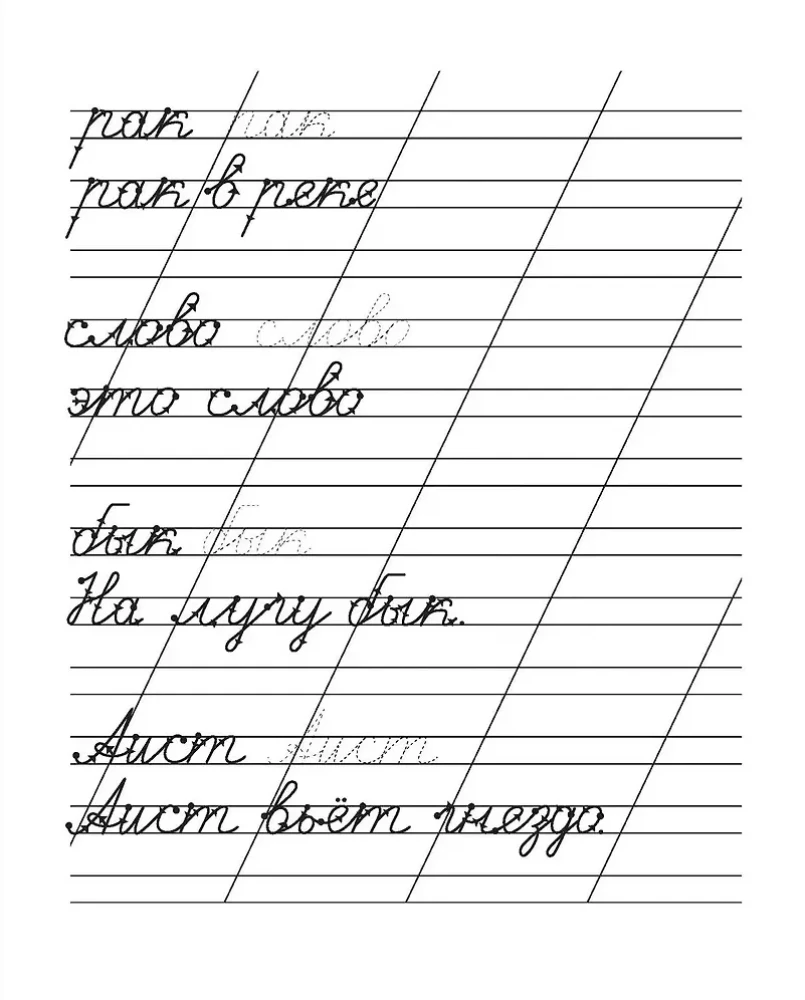 рак рак
рак в реке
слово слово
это слово
бык бык
На лугу бык.
Аист Аист
Аист вьёт гнездо.